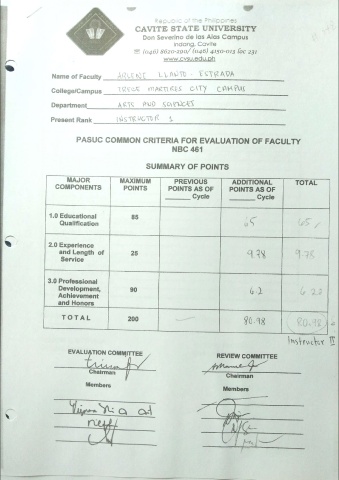 Republic of the Philippines
CAVITE STATE UNIVERSITY
Don Severino de las Alas Campus
Indang, Cavite
www.cvsu.edu.ph
Name of Faculty ARLENE LLANTO - ESTRADA
College/Campus TRECE MARTIRES CITY CAMPUS
Department ARTS AND SCIENCES
Present Rank INSTRUCTOR 1
PASUC COMMON CRITERIA FOR EVALUATION OF FACULTY
NBC 461
SUMMARY OF POINTS
MAJOR COMPONENTS MAXIMUM POINTS PREVIOUS POINTS AS OF ______ Cycle ADDITIONAL POINTS AS OF ______ Cycle TOTAL
1.0 Educational Qualification 85 65
2.0 Experience and Length of Service 25 9.78 9.78
3.0 Professional Development, Achievement and Honors 90 6.2 6.20
TOTAL 200 — 80.98 80.98
Instructor II
EVALUATION COMMITTEE
Chairman
Members
REVIEW COMMITTEE
Chairman
Members